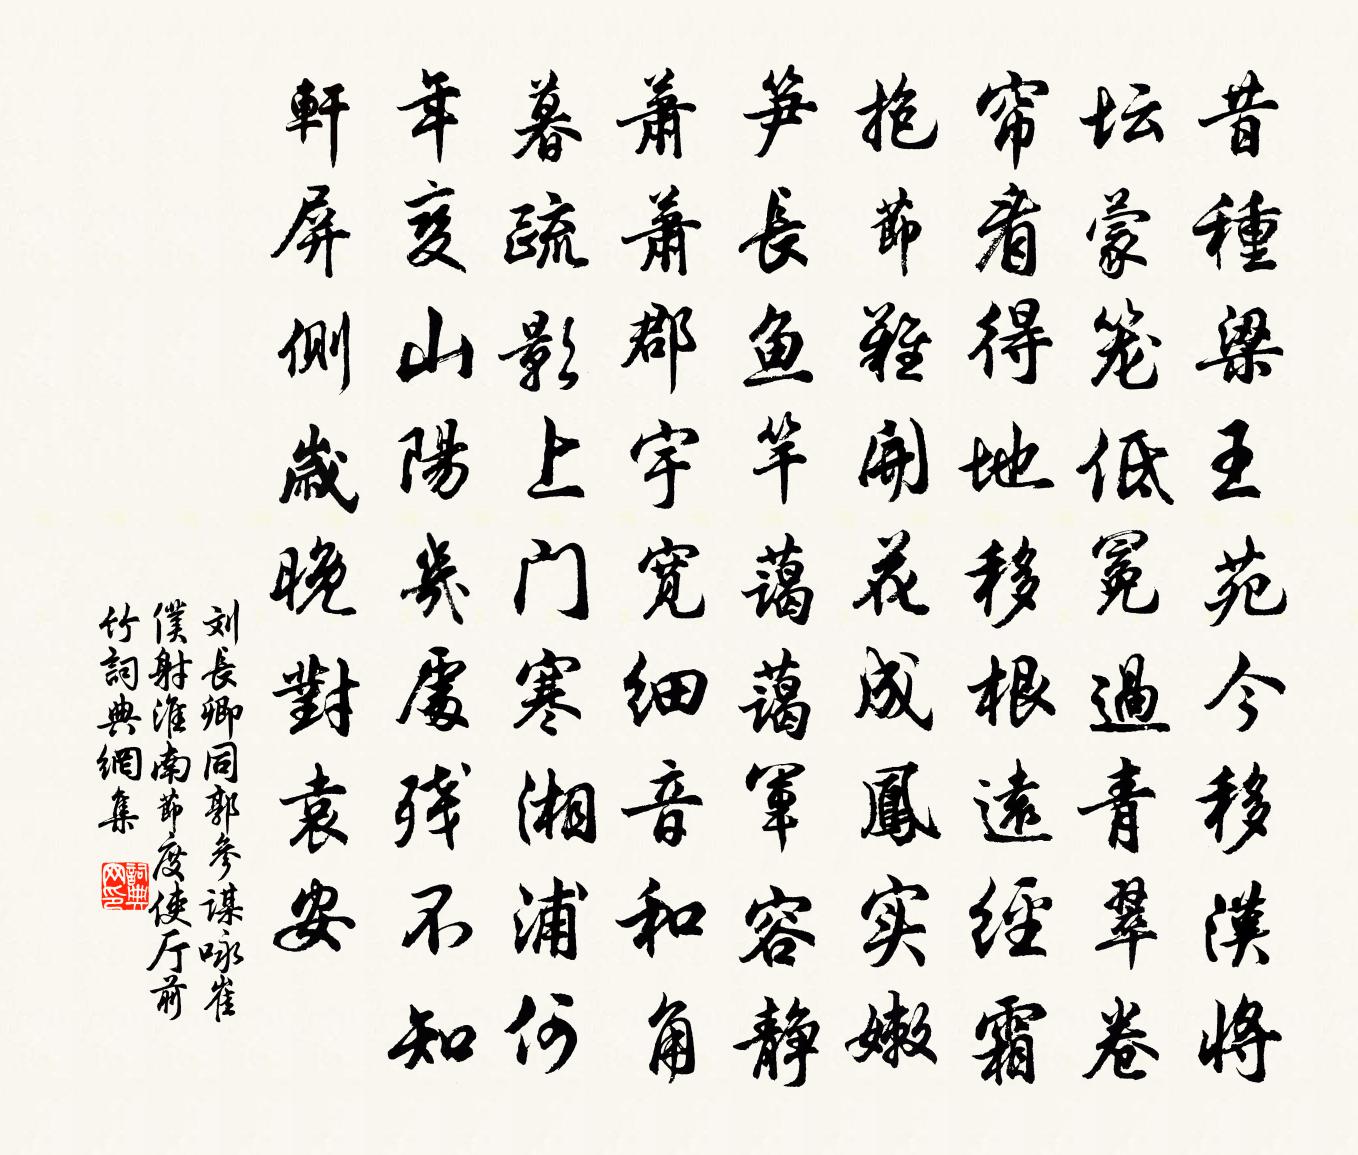 昔種梁王苑今移漢將
坛蒙笼低冕過青翠卷
帘看得地移根遠經霜
抱節難開花成鳳实嫩
笋長鱼竿蔼蔼軍容静
萧萧郡宇宽细音和角
暮疏影上门寒湘浦何
年变山陽幾處残不知
軒屏側歲晚對袁安
刘長卿同郭參謀咏崔
僕射淮南節度使厅前
竹詞典網集
詞典网印